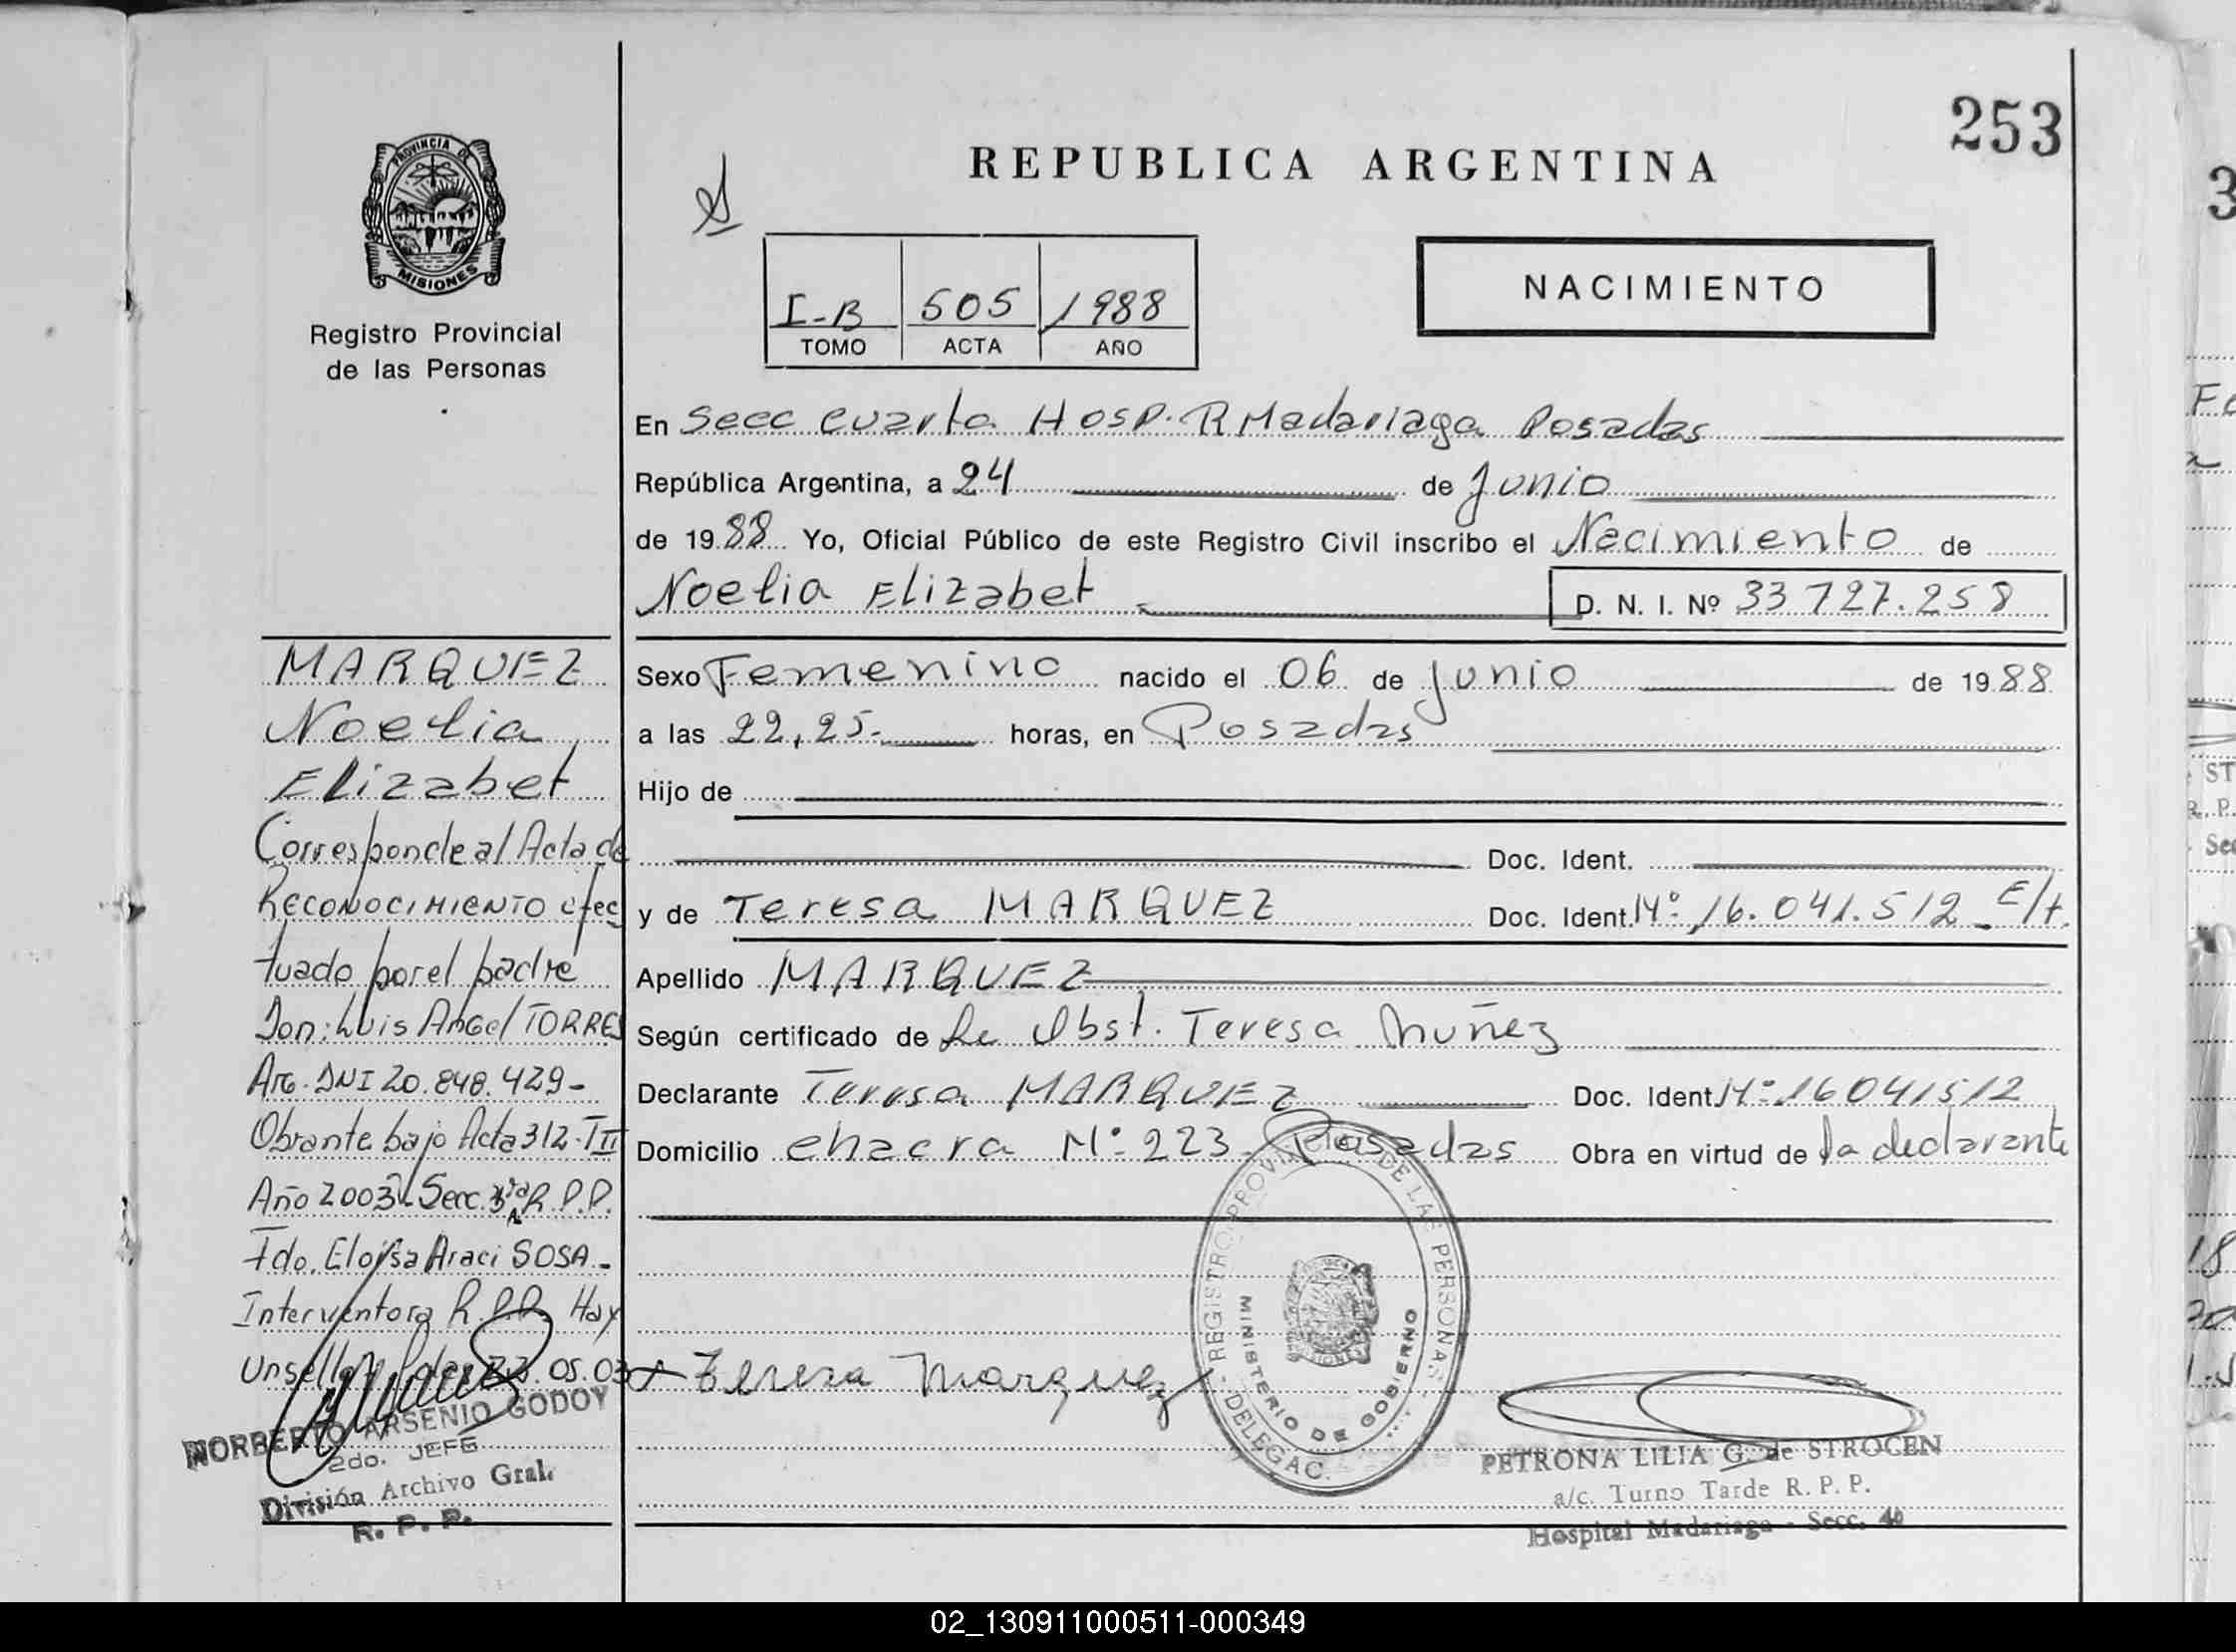 253
REPUBLICA ARGENTINA
PROVINCIA DE
MISIONES
Registro Provincial
de las Personas
I-B 505 1988
TOMO ACTA AÑO
NACIMIENTO
En Secc cuarta Hosp. R Madariaga Posadas
República Argentina, a 24 de Junio
de 1988 Yo, Oficial Público de este Registro Civil inscribo el Nacimiento de
Noelia Elizabet
D. N. I. Nº 33 727.258
Sexo Femenino nacido el 06 de Junio de 1988
a las 22,25- horas, en Posadas
Hijo de
Doc. Ident.
y de Teresa MARQUEZ Doc. Ident. Nº 16.041.512 E/t.
Apellido MARQUEZ
Según certificado de La Obst. Teresa Nuñez
Declarante Teresa MARQUEZ Doc. Ident Nº 16041512
Domicilio chacra Nº 223 Posadas Obra en virtud de la declarante
MARQUEZ
Noelia
Elizabet
Corresponde al Acta de
RECONOCIMIENTO efec
tuado por el padre
Don: Luis Angel TORRES
Arg. DNI 20.848.429-
Obrante bajo Acta 312-TII
Año 2003 Secc. 3ra R.P.P.
Fdo. Eloisa Araci SOSA-
Interventora R.P.P. Hay
Un sello Pdas 23.05.03
NORBERTO ARSENIO GODOY
2do. JEFE
División Archivo Gral.
R. P. P.
Tereza Marquez
REGISTRO PROVINCIAL DE LAS PERSONAS
MINISTERIO DE GOBIERNO
DELEGAC.
PETRONA LILIA G. de STROCEN
a/c. Turno Tarde R. P. P.
Hospital Madariaga - Secc. 4º
02_130911000511-000349